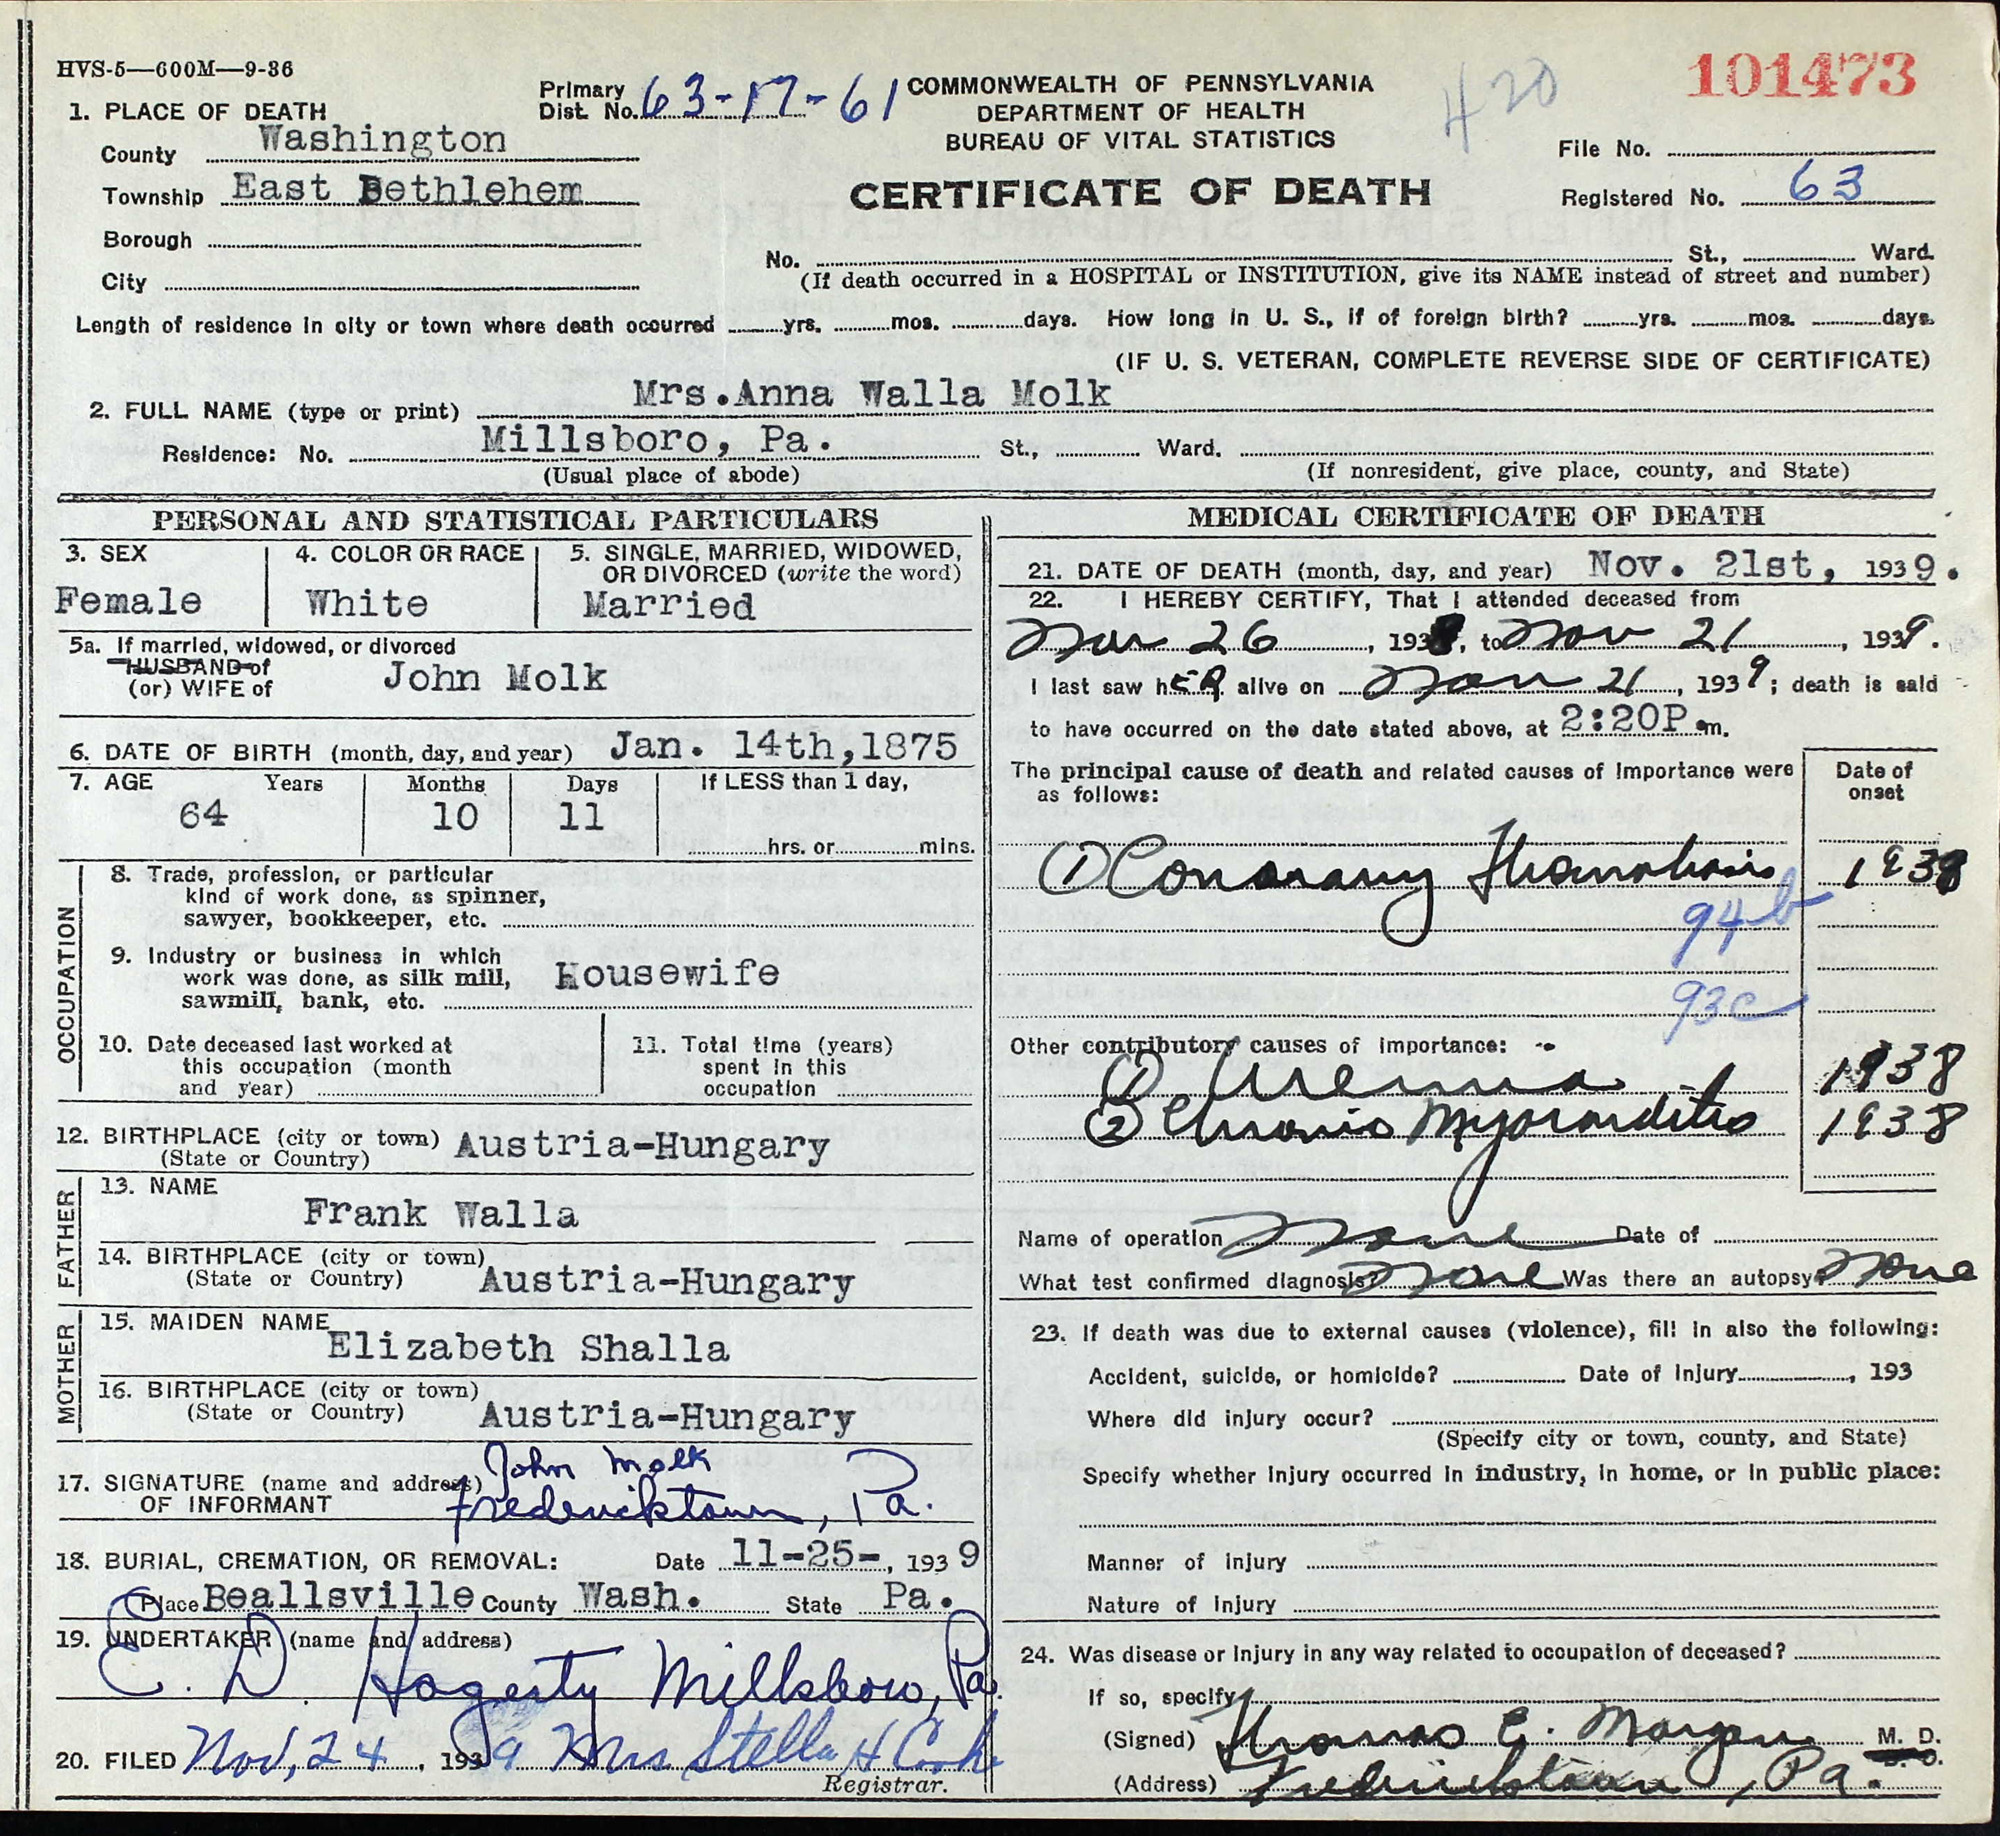 HVS-5—600M—9-36
101473
420
COMMONWEALTH OF PENNSYLVANIA
DEPARTMENT OF HEALTH
BUREAU OF VITAL STATISTICS
CERTIFICATE OF DEATH
Primary
Dist. No. 63-17-61
File No.
Registered No. 63
1. PLACE OF DEATH
County Washington
Township East Bethlehem
Borough
City
No. St., Ward.
(If death occurred in a HOSPITAL or INSTITUTION, give its NAME instead of street and number)
Length of residence in city or town where death occurred yrs. mos. days. How long in U. S., if of foreign birth? yrs. mos. days.
(IF U. S. VETERAN, COMPLETE REVERSE SIDE OF CERTIFICATE)
2. FULL NAME (type or print) Mrs.Anna Walla Molk
Residence: No. Millsboro, Pa. St., Ward.
(Usual place of abode) (If nonresident, give place, county, and State)
PERSONAL AND STATISTICAL PARTICULARS
3. SEX
Female
4. COLOR OR RACE
White
5. SINGLE, MARRIED, WIDOWED,
OR DIVORCED (write the word)
Married
5a. If married, widowed, or divorced
HUSBAND of
(or) WIFE of John Molk
6. DATE OF BIRTH (month, day, and year) Jan. 14th,1875
7. AGE Years Months Days If LESS than 1 day,
64 10 11
hrs. or mins.
OCCUPATION
8. Trade, profession, or particular
kind of work done, as spinner,
sawyer, bookkeeper, etc.
9. Industry or business in which
work was done, as silk mill,
sawmill, bank, etc. Housewife
10. Date deceased last worked at
this occupation (month
and year)
11. Total time (years)
spent in this
occupation
12. BIRTHPLACE (city or town) Austria-Hungary
(State or Country)
FATHER
13. NAME
Frank Walla
14. BIRTHPLACE (city or town)
(State or Country) Austria-Hungary
MOTHER
15. MAIDEN NAME
Elizabeth Shalla
16. BIRTHPLACE (city or town)
(State or Country) Austria-Hungary
17. SIGNATURE (name and address) John Molk
OF INFORMANT Fredericktown, Pa.
18. BURIAL, CREMATION, OR REMOVAL: Date 11-25-, 1939
Place Beallsville County Wash. State Pa.
19. UNDERTAKER (name and address)
E. D. Hagerty Millsboro, Pa.
20. FILED Nov, 24, 1939 Mrs Stella H Cook
Registrar.
MEDICAL CERTIFICATE OF DEATH
21. DATE OF DEATH (month, day, and year) Nov. 21st, 1939.
22. I HEREBY CERTIFY, That I attended deceased from
26, 1938, to Nov 21, 1939.
I last saw her alive on Nov 21, 1939; death is said
to have occurred on the date stated above, at 2:20P.m.
The principal cause of death and related causes of importance were
as follows:
Date of
onset
① Coronary Thrombosis 1938
94b
93c
Other contributory causes of importance:
① Uremia 1938
② Chronic Myocarditis 1938
Name of operation None Date of
What test confirmed diagnosis? None Was there an autopsy? None
23. If death was due to external causes (violence), fill in also the following:
Accident, suicide, or homicide? Date of injury , 193
Where did injury occur?
(Specify city or town, county, and State)
Specify whether injury occurred in industry, in home, or in public place:
Manner of injury
Nature of injury
24. Was disease or injury in any way related to occupation of deceased?
If so, specify
(Signed) Thomas C. Morgan M. D.
(Address) Fredericktown, Pa.